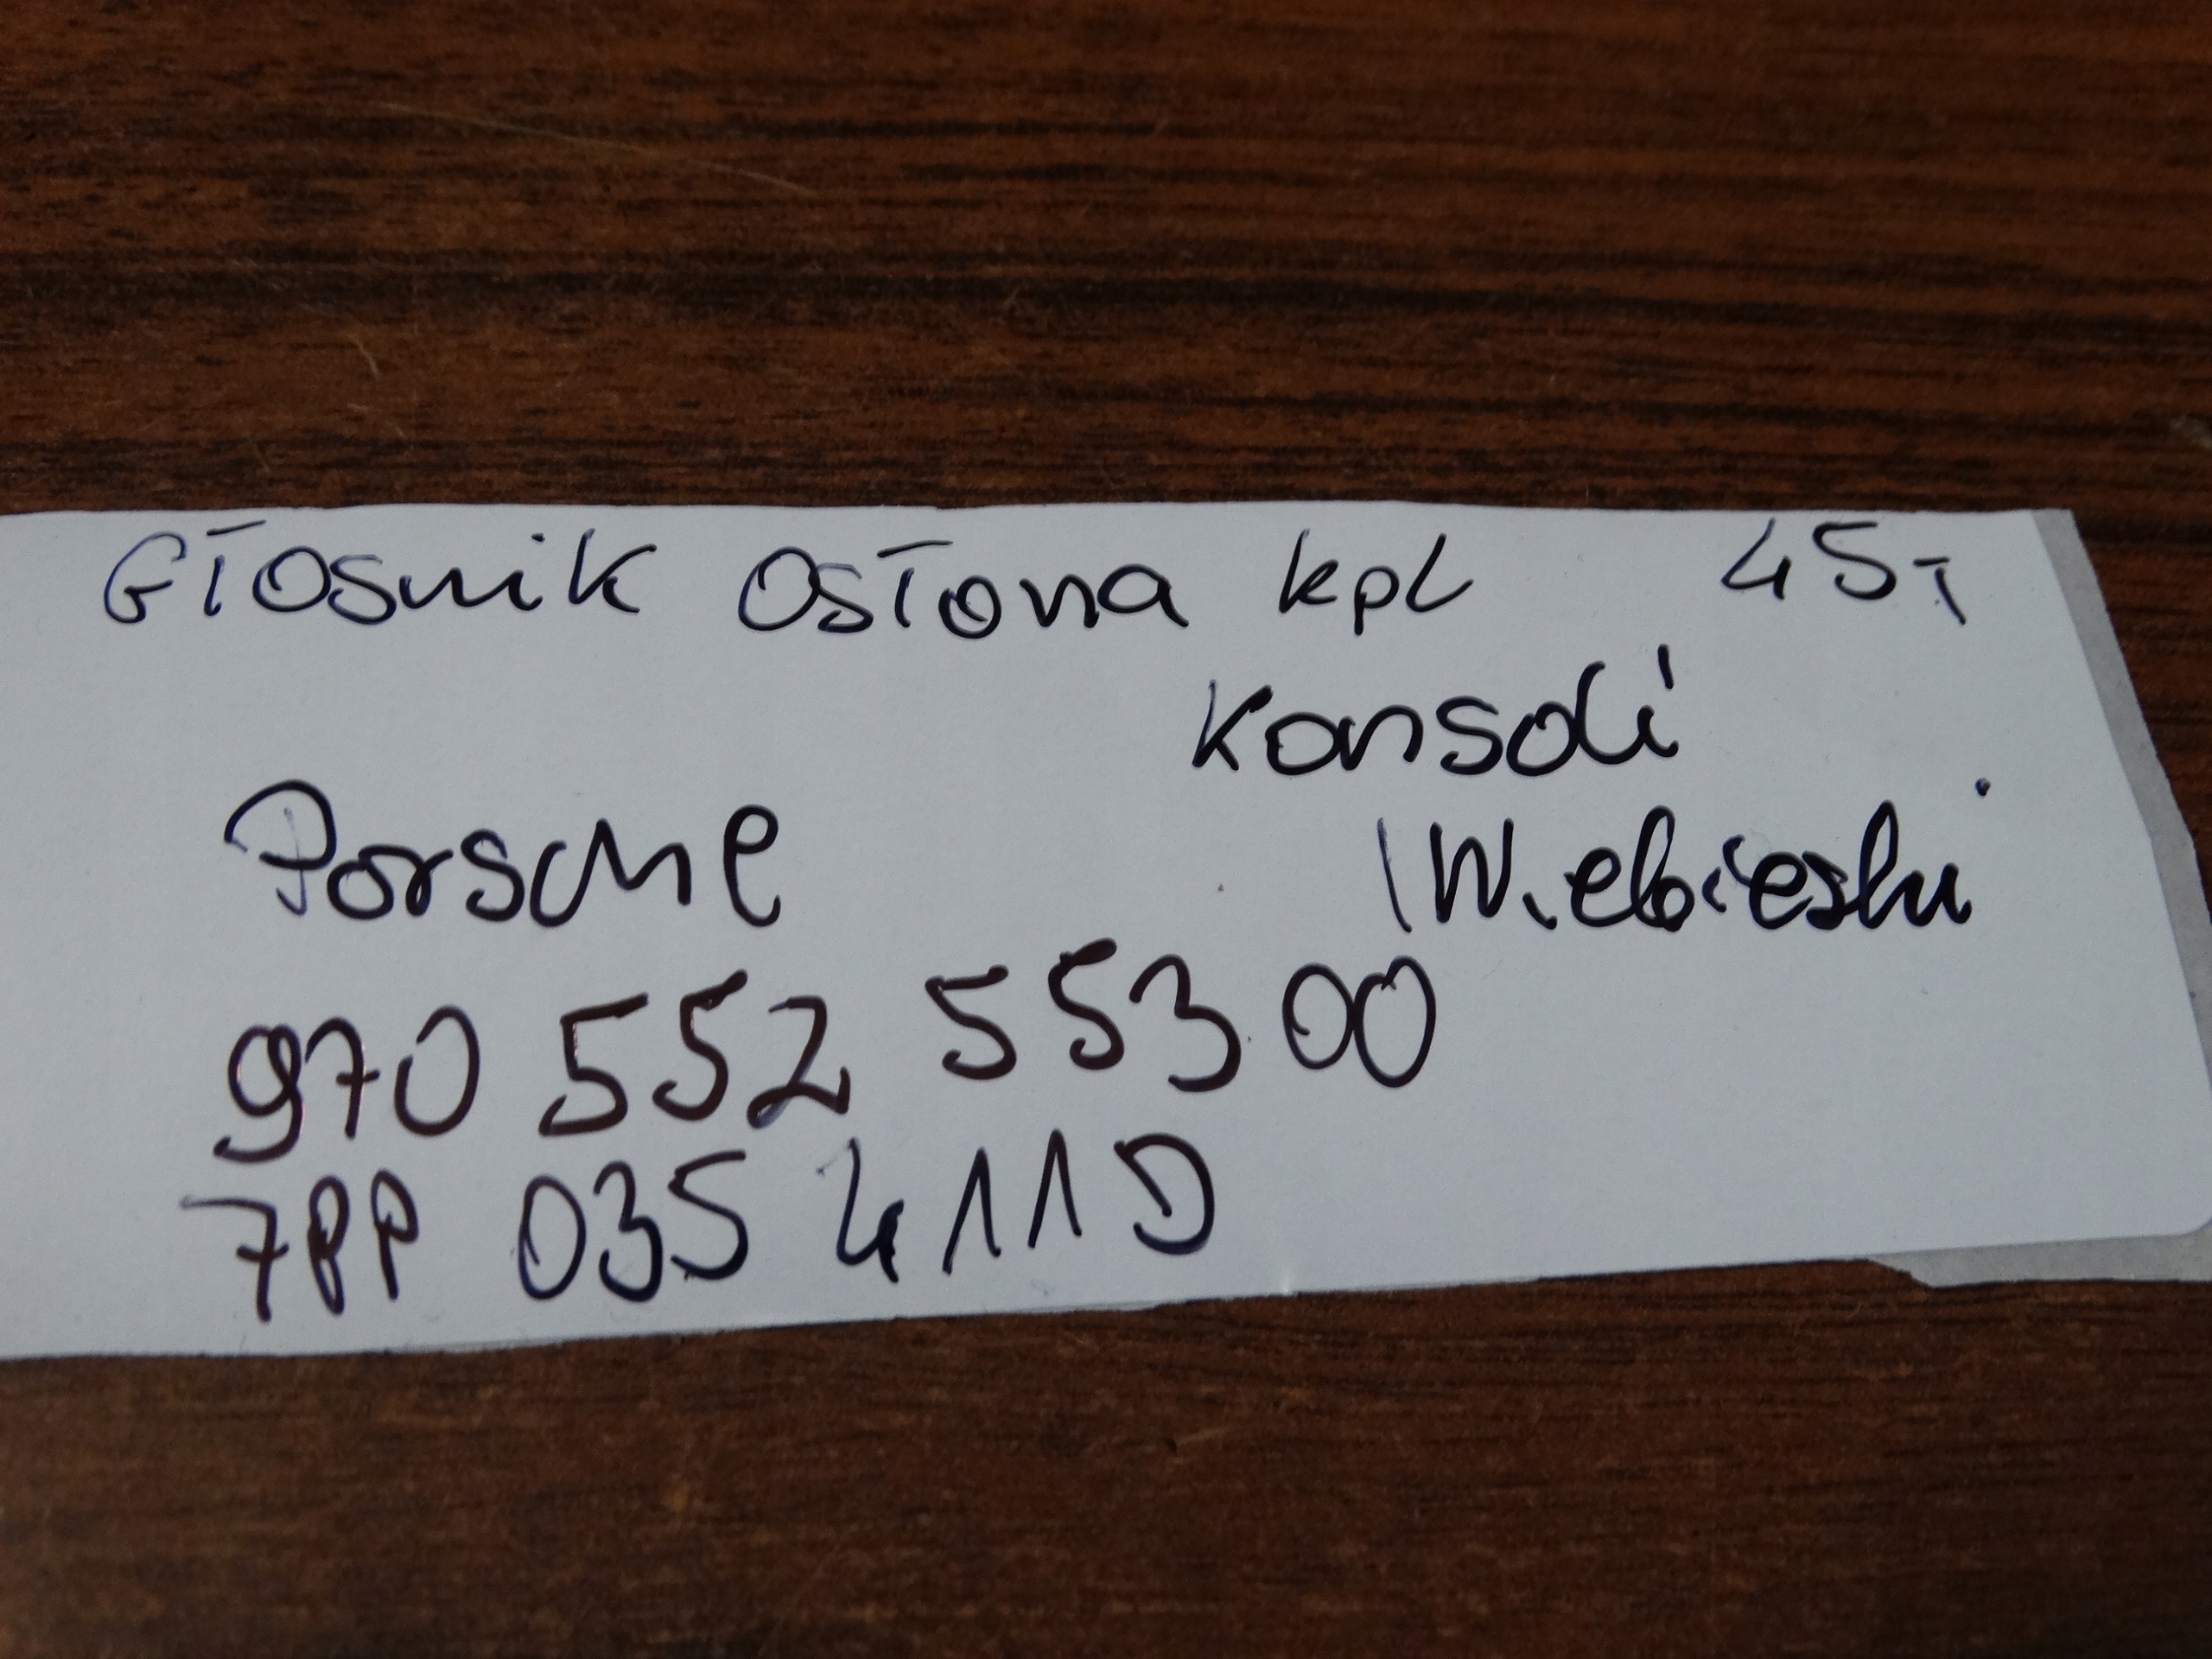 Głosnik Osłona kpl 45,-
Konsoli
Porsche
970 552 553 00
7PP 035 411 D